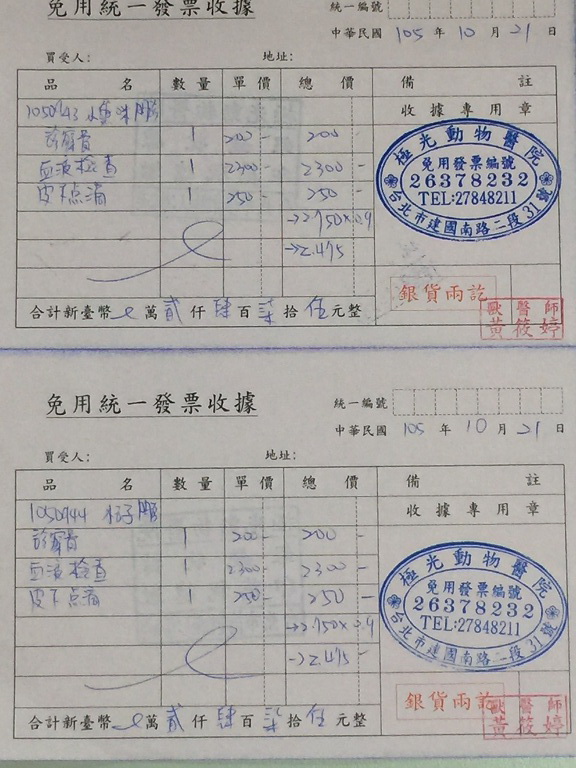 免用統一發票收據
統一編號
中華民國 105 年 10 月 21 日
買受人: 地址:
品 名 數量 單價 總價 備註
1050943
收據專用章
診察費 1 200- 200-
血液檢查 1 2300- 2300-
皮下点滴 1 250- 250-
→2.750×0.9
→2.475-
極光動物醫院
免用發票編號
26378232
TEL:27848211
台北市建國南路二段31號
銀貨兩訖
歐醫師
黃筱婷
合計新臺幣 萬貳仟肆百柒拾伍元整
免用統一發票收據
統一編號
中華民國 105 年 10 月 21 日
買受人: 地址:
品 名 數量 單價 總價 備註
1050944
收據專用章
診察費 1 200- 200-
血液檢查 1 2300- 2300-
皮下点滴 1 250- 250-
→2.750×0.9
→2.475-
極光動物醫院
免用發票編號
26378232
TEL:27848211
台北市建國南路二段31號
銀貨兩訖
歐醫師
黃筱婷
合計新臺幣 萬貳仟肆百柒拾伍元整